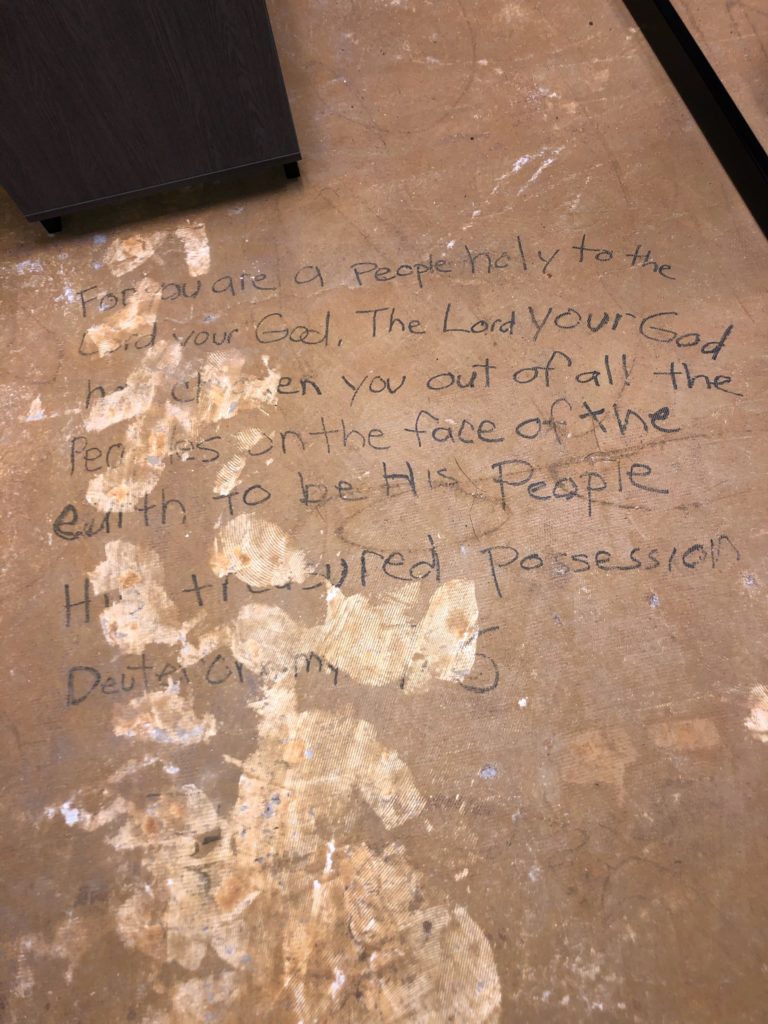 For you are a People holy to the
Lord your God. The Lord your God
you out of all the
on the face of the
earth to be His People
His treasured possession
Deuteronomy